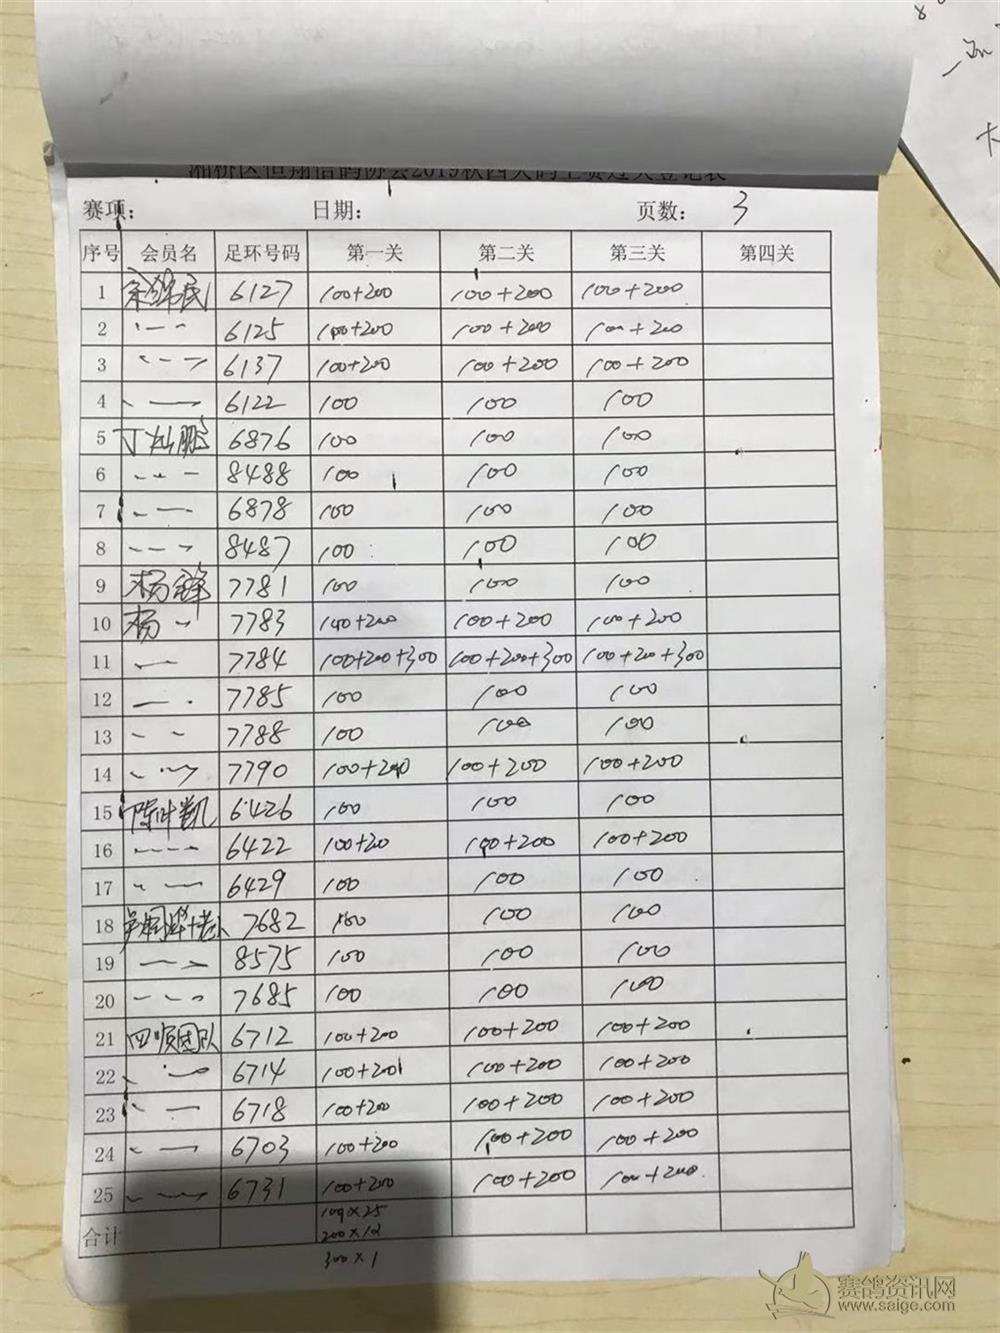 湘桥区恒翔信鸽协会2019秋四关鸽王赛过关登记表
赛项： 日期： 页数： 3
序号 会员名 足环号码 第一关 第二关 第三关 第四关
1 6127 100+200 100+200 100+200
2 6125 100+200 100+200 100+200
3 6137 100+200 100+200 100+200
4 6122 100 100 100
5 丁灿鹏 6876 100 100 100
6 8488 100 100 100
7 6878 100 100 100
8 8487 100 100 100
9 杨锋 7781 100 100 100
10 杨 7783 100+200 100+200 100+200
11 7784 100+200+300 100+200+300 100+200+300
12 7785 100 100 100
13 7788 100 100 100
14 7790 100+200 100+200 100+200
15 陈叶凯 6426 100 100 100
16 6422 100+200 100+200 100+200
17 6429 100 100 100
18 7682 100 100 100
19 8575 100 100 100
20 7685 100 100 100
21 四顺团队 6712 100+200 100+200 100+200
22 6714 100+200 100+200 100+200
23 6718 100+200 100+200 100+200
24 6703 100+200 100+200 100+200
25 6731 100+200 100+200 100+200
合计 100×25
200×12
300×1
赛鸽资讯网
www.saige.com